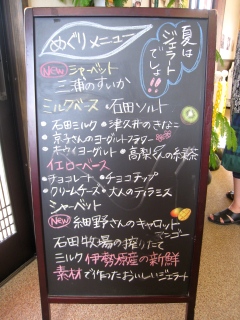 めぐりメニュー
夏は
ジェラート
でしょ!!
New シャーベット
三浦のすいか
ミルクベース ・石田ソルト
・石田ミルク ・津久井のきなこ
・京子さんのヨーグルトフラワー
・キウイヨーグルト ・高梨さんの緑茶
イエローベース
・チョコレート ・チョコチップ
・クリームチーズ ・大人のティラミス
シャーベット
New 細野さんのキャロット
マンゴー
石田牧場の搾りたて
ミルク伊勢原産の新鮮
素材で作ったおいしいジェラート